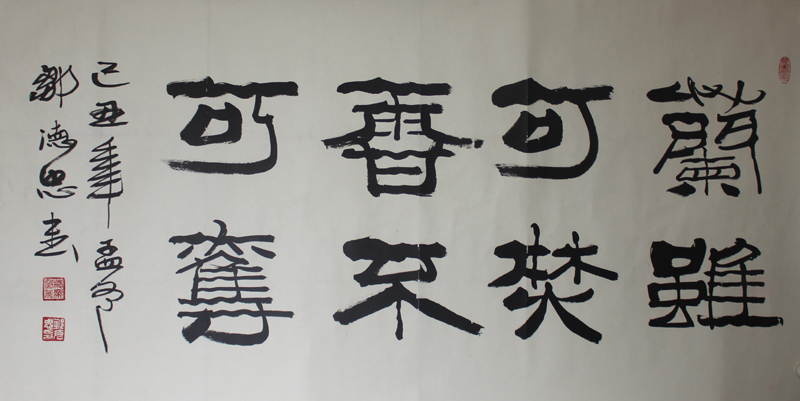 蘭雖
可焚
香不
可奪
己丑年孟
德忠書